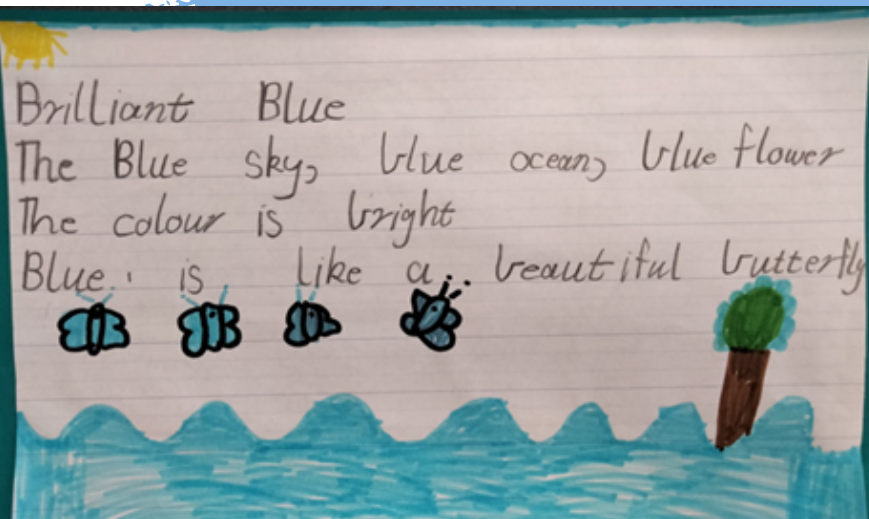 Brilliant Blue
The Blue sky, blue ocean, blue flower
The colour is bright
Blue is like a beautiful butterfly